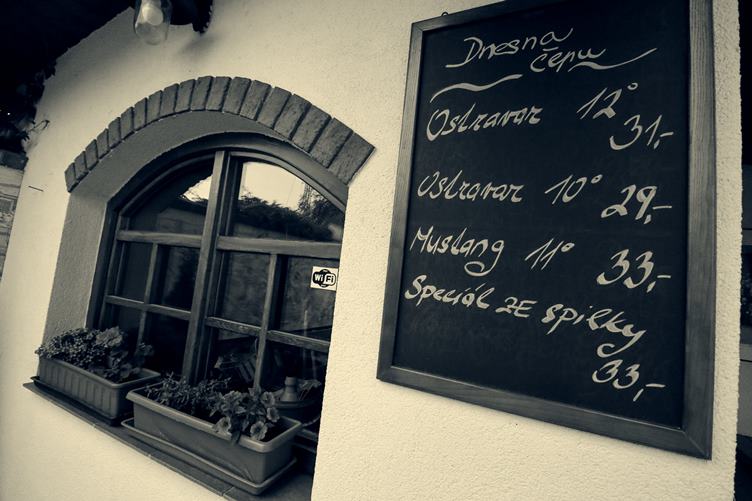 Dnes na
čepu
Ostravar 12° 31,-
Ostravar 10° 29,-
Mustang 11° 33,-
Speciál ZE spilky
33,-
WiFi